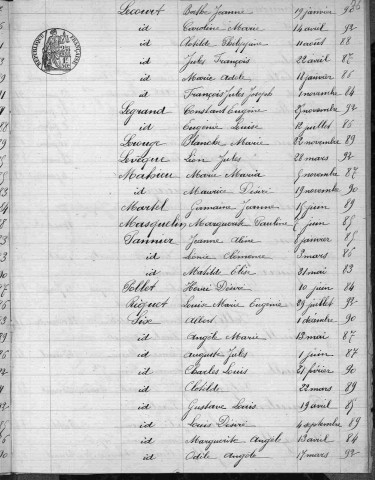 Lecouvet Berthe Jeanne 19 janvier 92
id Caroline Marie 14 avril 92
id Clotilde 11 août 88
id Jules François 22 avril 87
id Marie Adèle 11 janvier 86
id François Jules Joseph 1 novembre 84
Legrand Constant Eugène 27 novembre 92
id Eugénie Louise 12 juillet 86
Lesage Blanche Marie 22 novembre 89
Levêque Léon Jules 28 mars 92
Mahieu Marie Maria 5 novembre 87
id Maurice Désiré 19 novembre 90
Martel Germaine Jeanne 15 juin 89
Masquelin Marguerite Pauline 6 juin 85
Pannier Jeanne Aline 6 janvier 85
id Léonie Clémence 3 mars 86
id Mathilde Elise 21 mai 83
Pollet Henri Désiré 10 juin 84
Riquet Louise Marie Eugénie 29 juillet 92
Six Albert 1 décembre 90
id Angèle Marie 13 mai 87
id Auguste Jules 1 juin 87
id Charles Louis 21 février 90
id Clotilde 22 mars 89
id Gustave Louis 19 avril 85
id Louis Désiré 4 septembre 89
id Marguerite Angèle 13 avril 84
id Odile Angèle 17 mars 92